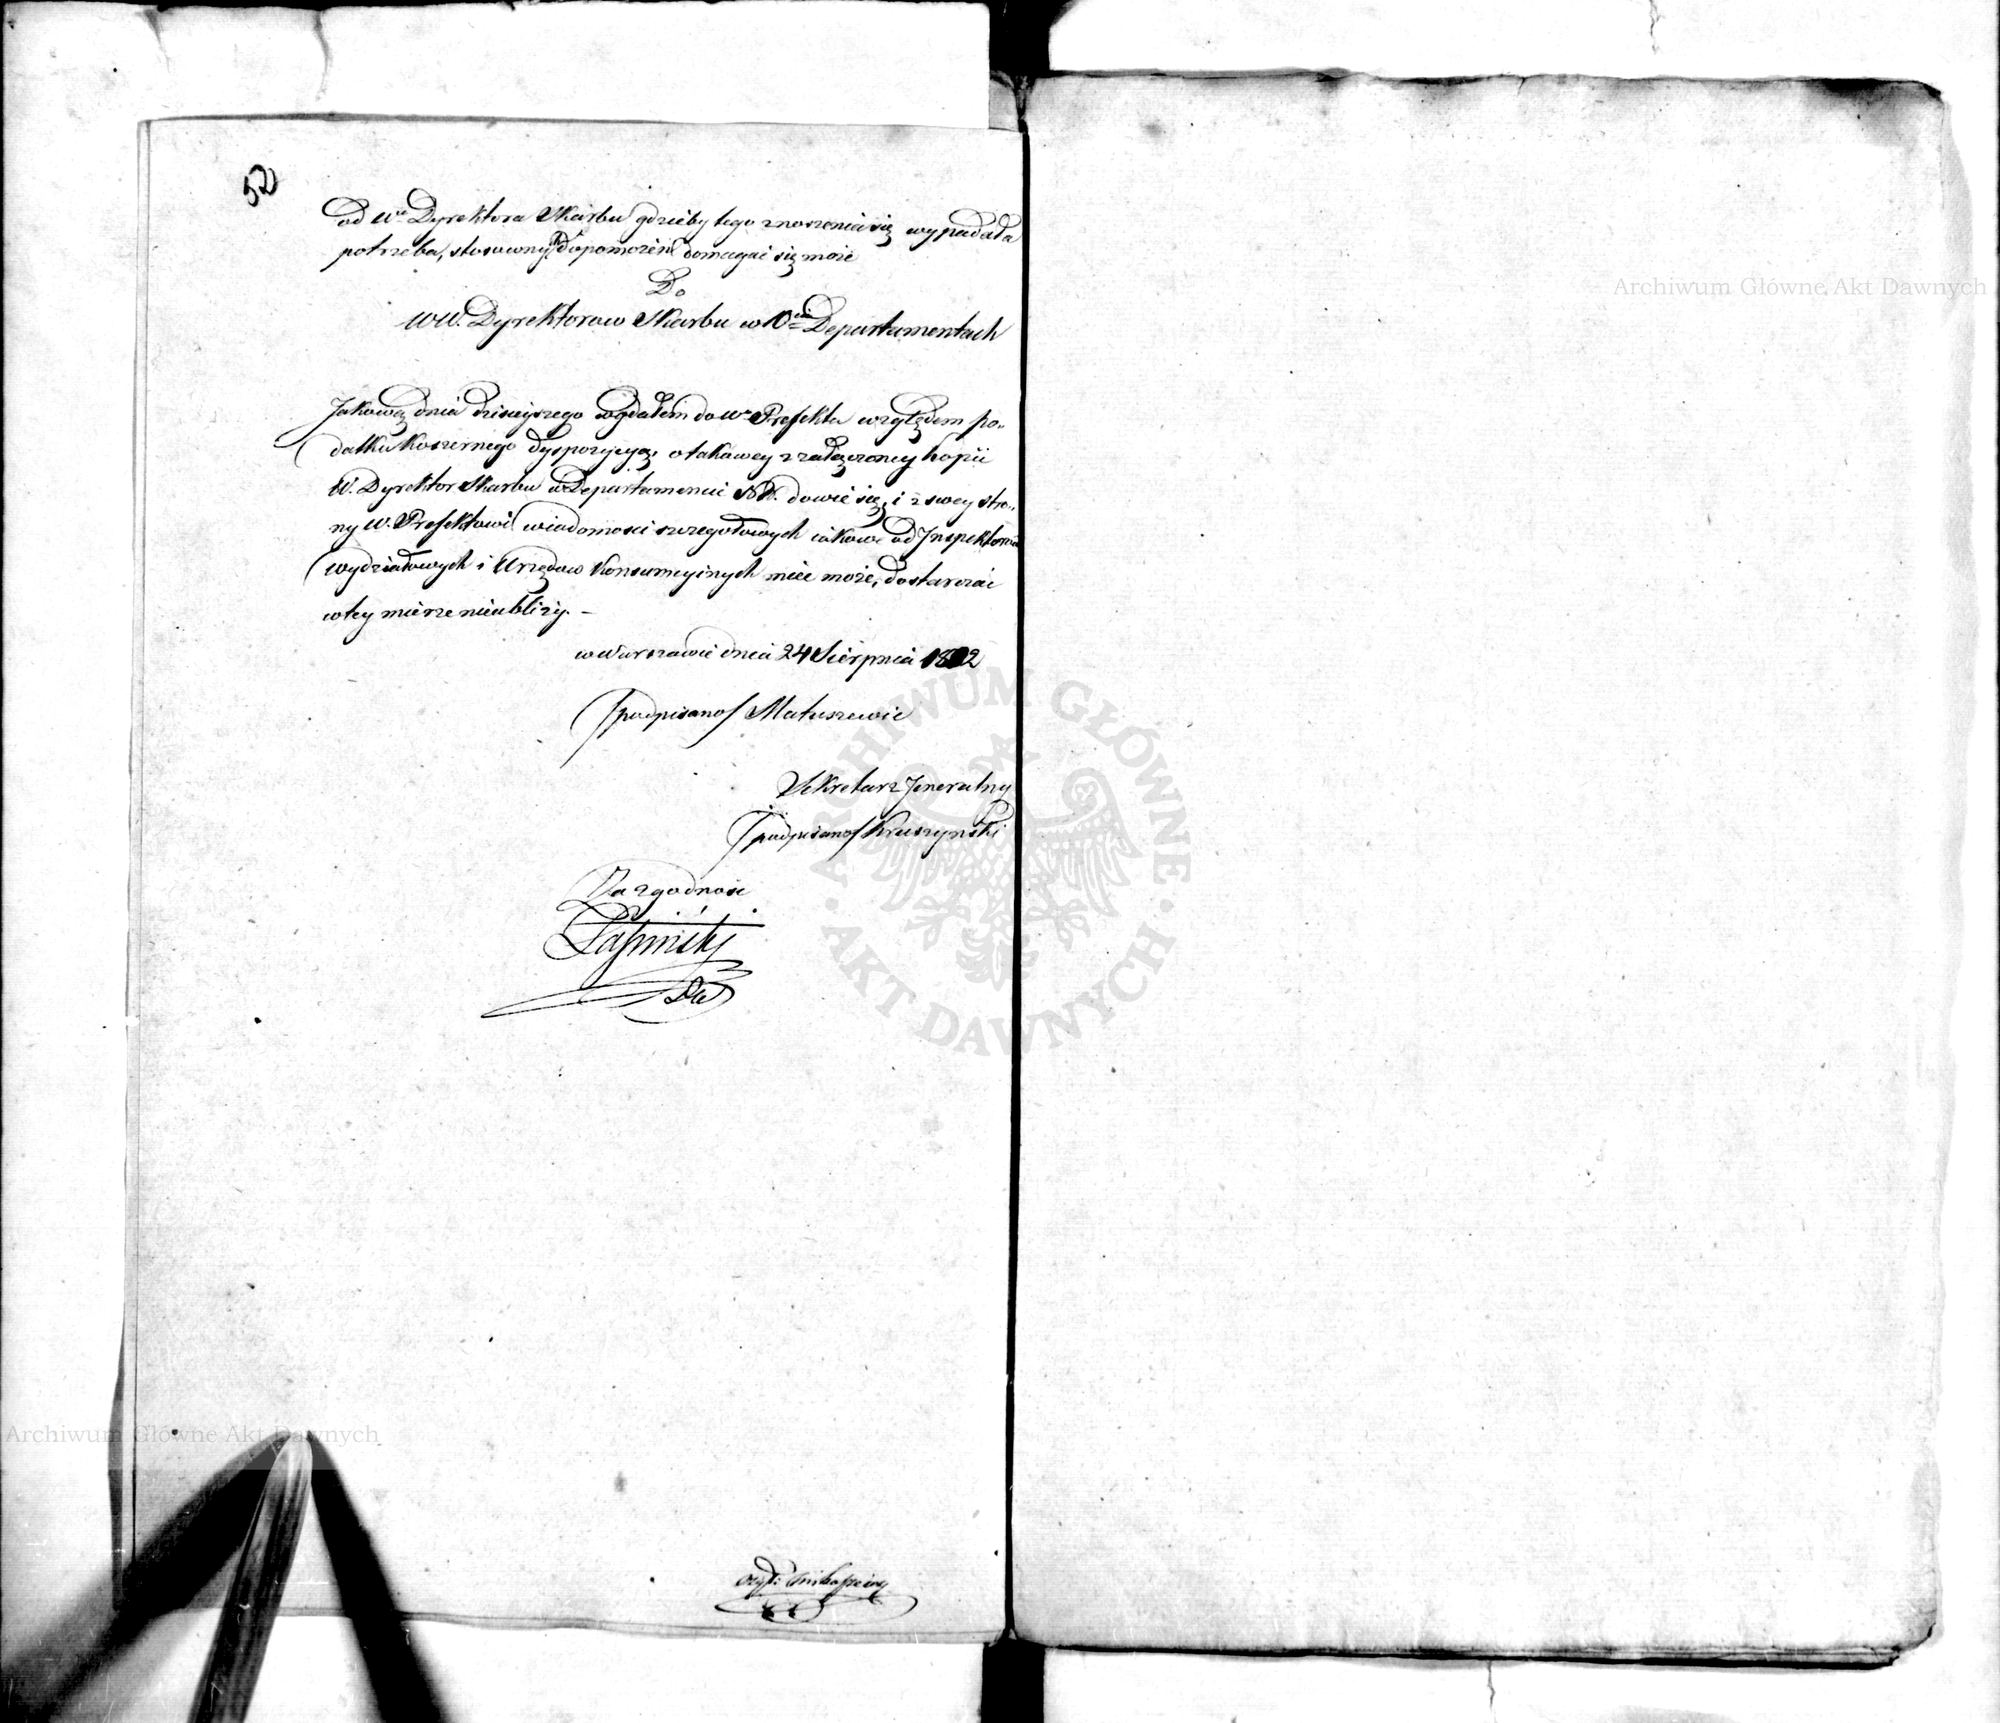 52
od Wo Dyrektora Skarbu gdzieby tego znoszenia się wypadała
potrzeba, stosowny dopomożeń domagać się może
Do
WW. Dyrektorow Skarbu w 10ciu Departamentach
Jakową dnia dzisieyszego wydałem do Wo Prefekta względem po„
datku Koszernego dyspozycyą, o takowey z załączoney kopii
W. Dyrektor Skarbu w Departamencie NN. dowie się, i z swey stro„
ny W. Prefektowi wiadomości szczegołowych iakowe od Inspektorow
wydziałowych i Urzędow Konsumcyinych mieć może, dostarczać
w tey mierze nieubliży. –
w Warszawie dnia 24 Sierpnia 1812
/podpisano/ Matuszewic
Sekretarz Jeneralny
/podpisano/ Kruszyński
Za zgodność
Archiwum Główne Akt Dawnych
Archiwum Główne Akt Dawnych
ARCHIWUM GŁÓWNE · AKT DAWNYCH ·